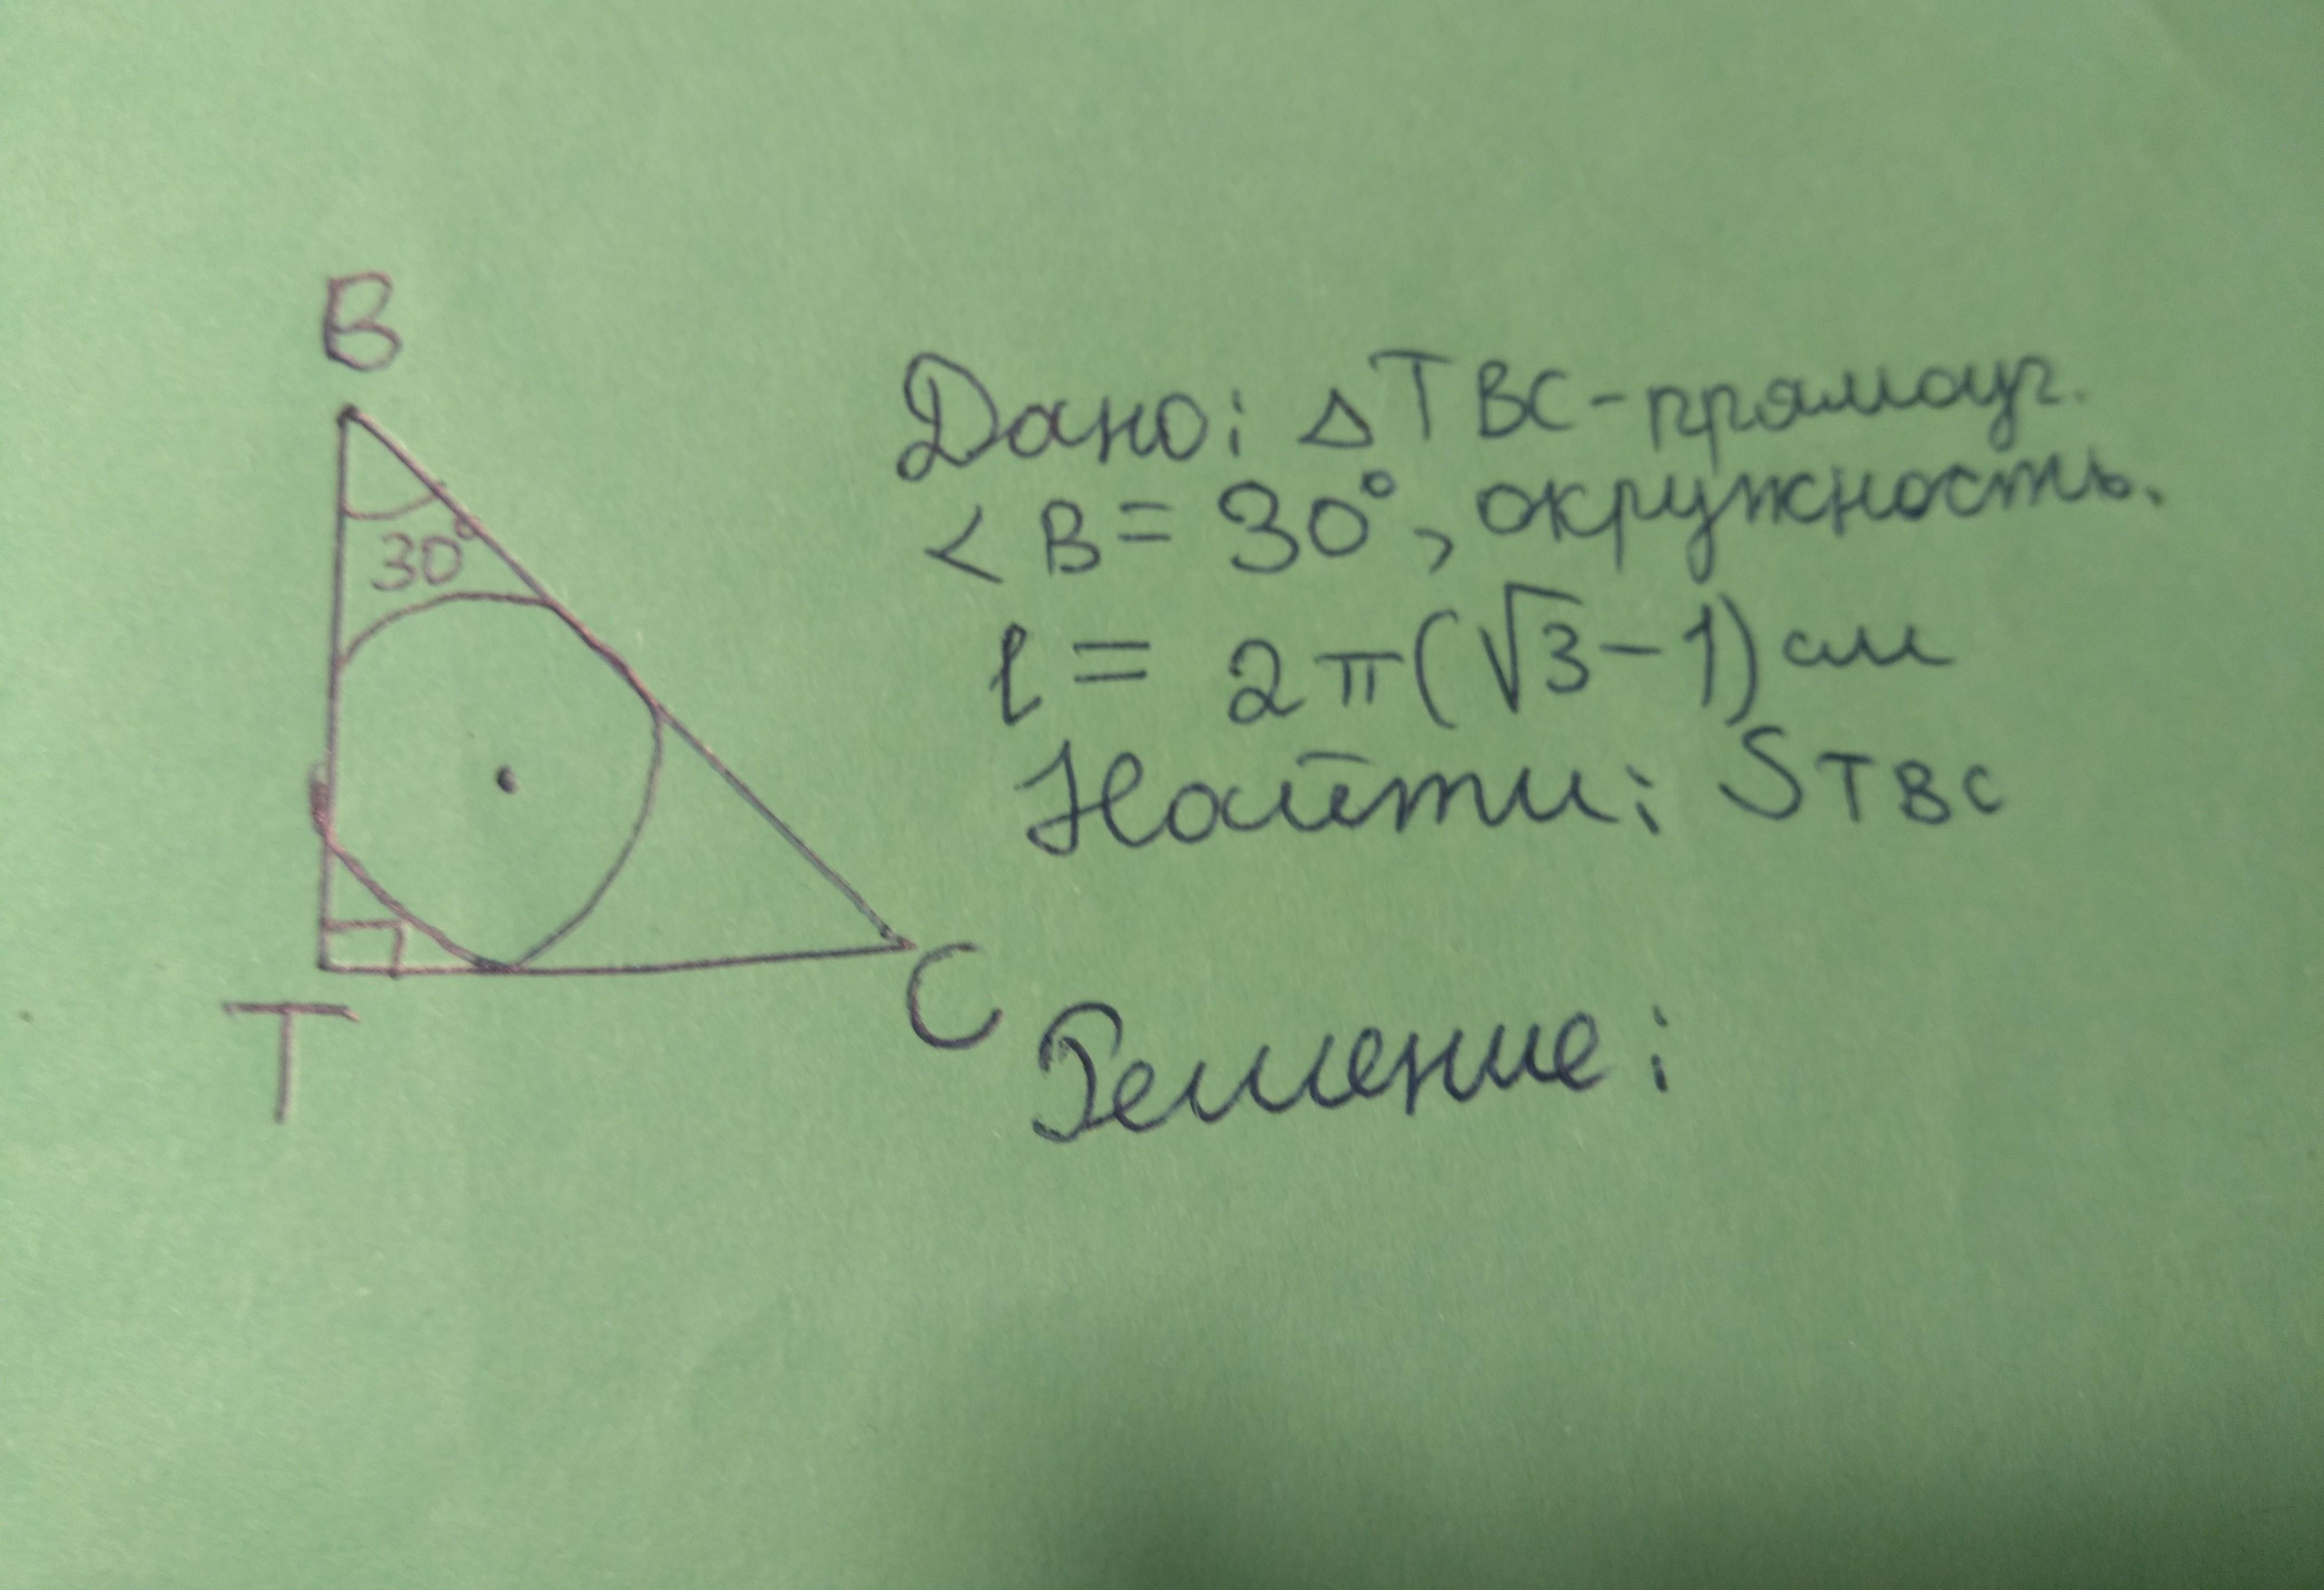 B
30°
T
C
Дано: △TBC-прямоуг.
<B = 30°, окружность.
l = 2π(√3-1)см
Найти: STBC
Решение: